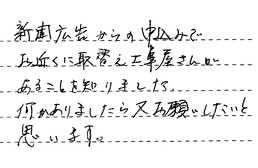 新聞広告からの申込みで
お近くに取替え工事屋さんが
あることを知りました。
何かありましたら又お願いしたいと
思います。